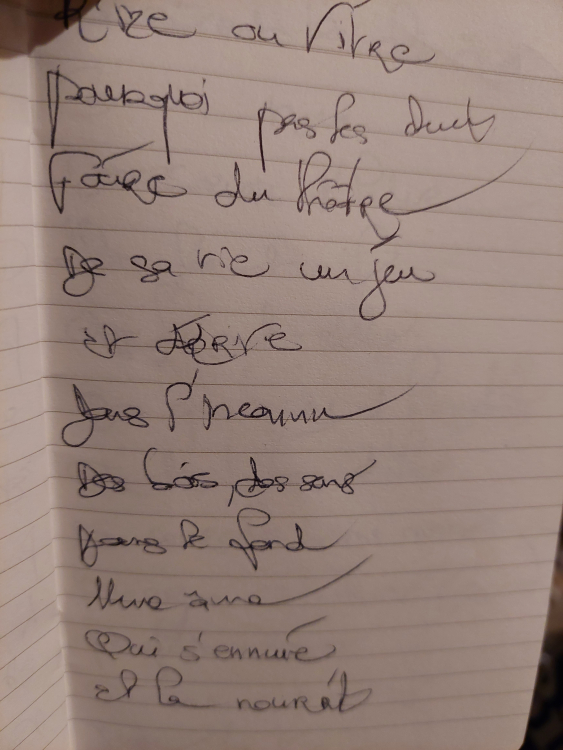 Rire ou Vivre
pourquoi pas les deux
Faire du théâtre
De sa vie un jeu
et écrire
Dans l'inconnu
Des bois, des sens
Dans le fond
D'une âme
Qui s'ennuie
et la nourrit